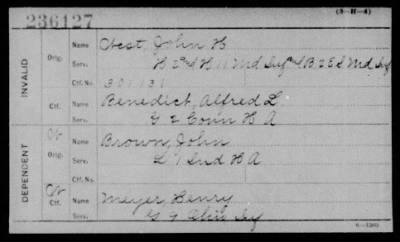 (3-H-4)
236127
INVALID
Orig. Name West, John H
Serv. H 2nd H 11 Md Inf & B 2 E S Md Inf
Ctf. No. 301131
Ctf. Name Benedict, Alfred L.
Serv. G 2 Conn H A
DEPENDENT
Ct Orig. Name Brown, John
Serv. L 1 Ind H A
Ctf. No.
Ctf Ctf. Name Meyer, Henry
Serv. G 9 Ohio Inf